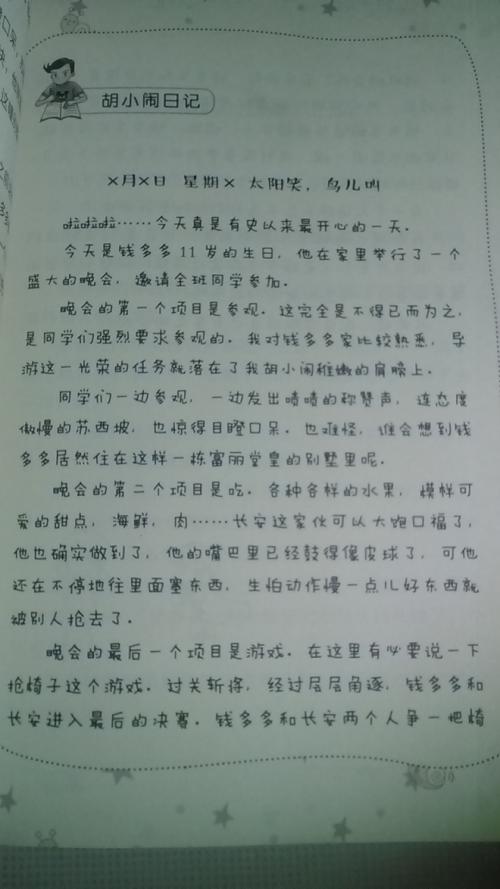 胡小闹日记
×月×日 星期× 太阳笑，鸟儿叫
啦啦啦……今天真是有史以来最开心的一天。
今天是钱多多11岁的生日，他在家里举行了一个
盛大的晚会，邀请全班同学参加。
晚会的第一个项目是参观。这完全是不得已而为之，
是同学们强烈要求参观的。我对钱多多家比较熟悉，导
游这一光荣的任务就落在了我胡小闹稚嫩的肩膀上。
同学们一边参观，一边发出啧啧的称赞声，连态度
傲慢的苏西坡，也惊得目瞪口呆。也难怪，谁会想到钱
多多居然住在这样一栋富丽堂皇的别墅里呢。
晚会的第二个项目是吃。各种各样的水果，模样可
爱的甜点，海鲜，肉……长安这家伙可以大饱口福了，
他也确实做到了，他的嘴巴里已经鼓得像皮球了，可他
还在不停地往里面塞东西，生怕动作慢一点儿好东西就
被别人抢去了。
晚会的最后一个项目是游戏。在这里有必要说一下
抢椅子这个游戏。过关斩将，经过层层角逐，钱多多和
长安进入最后的决赛。钱多多和长安两个人争一把椅